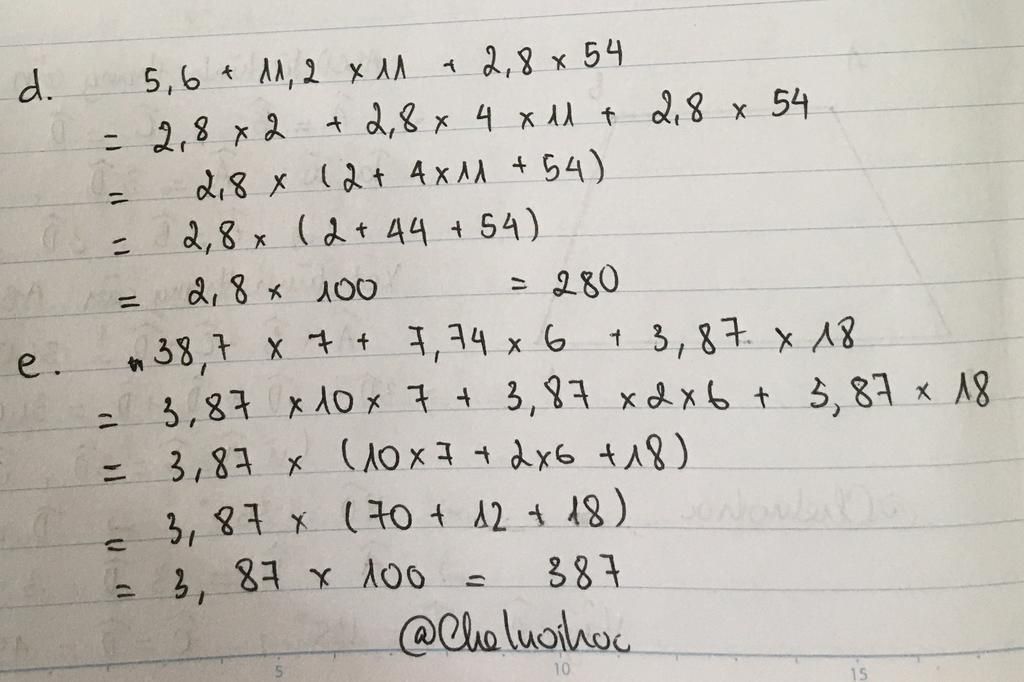 d. 5,6 + 11,2 × 11 + 2,8 × 54
= 2,8 × 2 + 2,8 × 4 × 11 + 2,8 × 54
= 2,8 × (2 + 4 × 11 + 54)
= 2,8 × (2 + 44 + 54)
= 2,8 × 100 = 280
e. 38,7 × 7 + 7,74 × 6 + 3,87 × 18
= 3,87 × 10 × 7 + 3,87 × 2 × 6 + 3,87 × 18
= 3,87 × (10 × 7 + 2 × 6 + 18)
= 3,87 × (70 + 12 + 18)
= 3,87 × 100 = 387
@Cheluoihoc
5 10 15